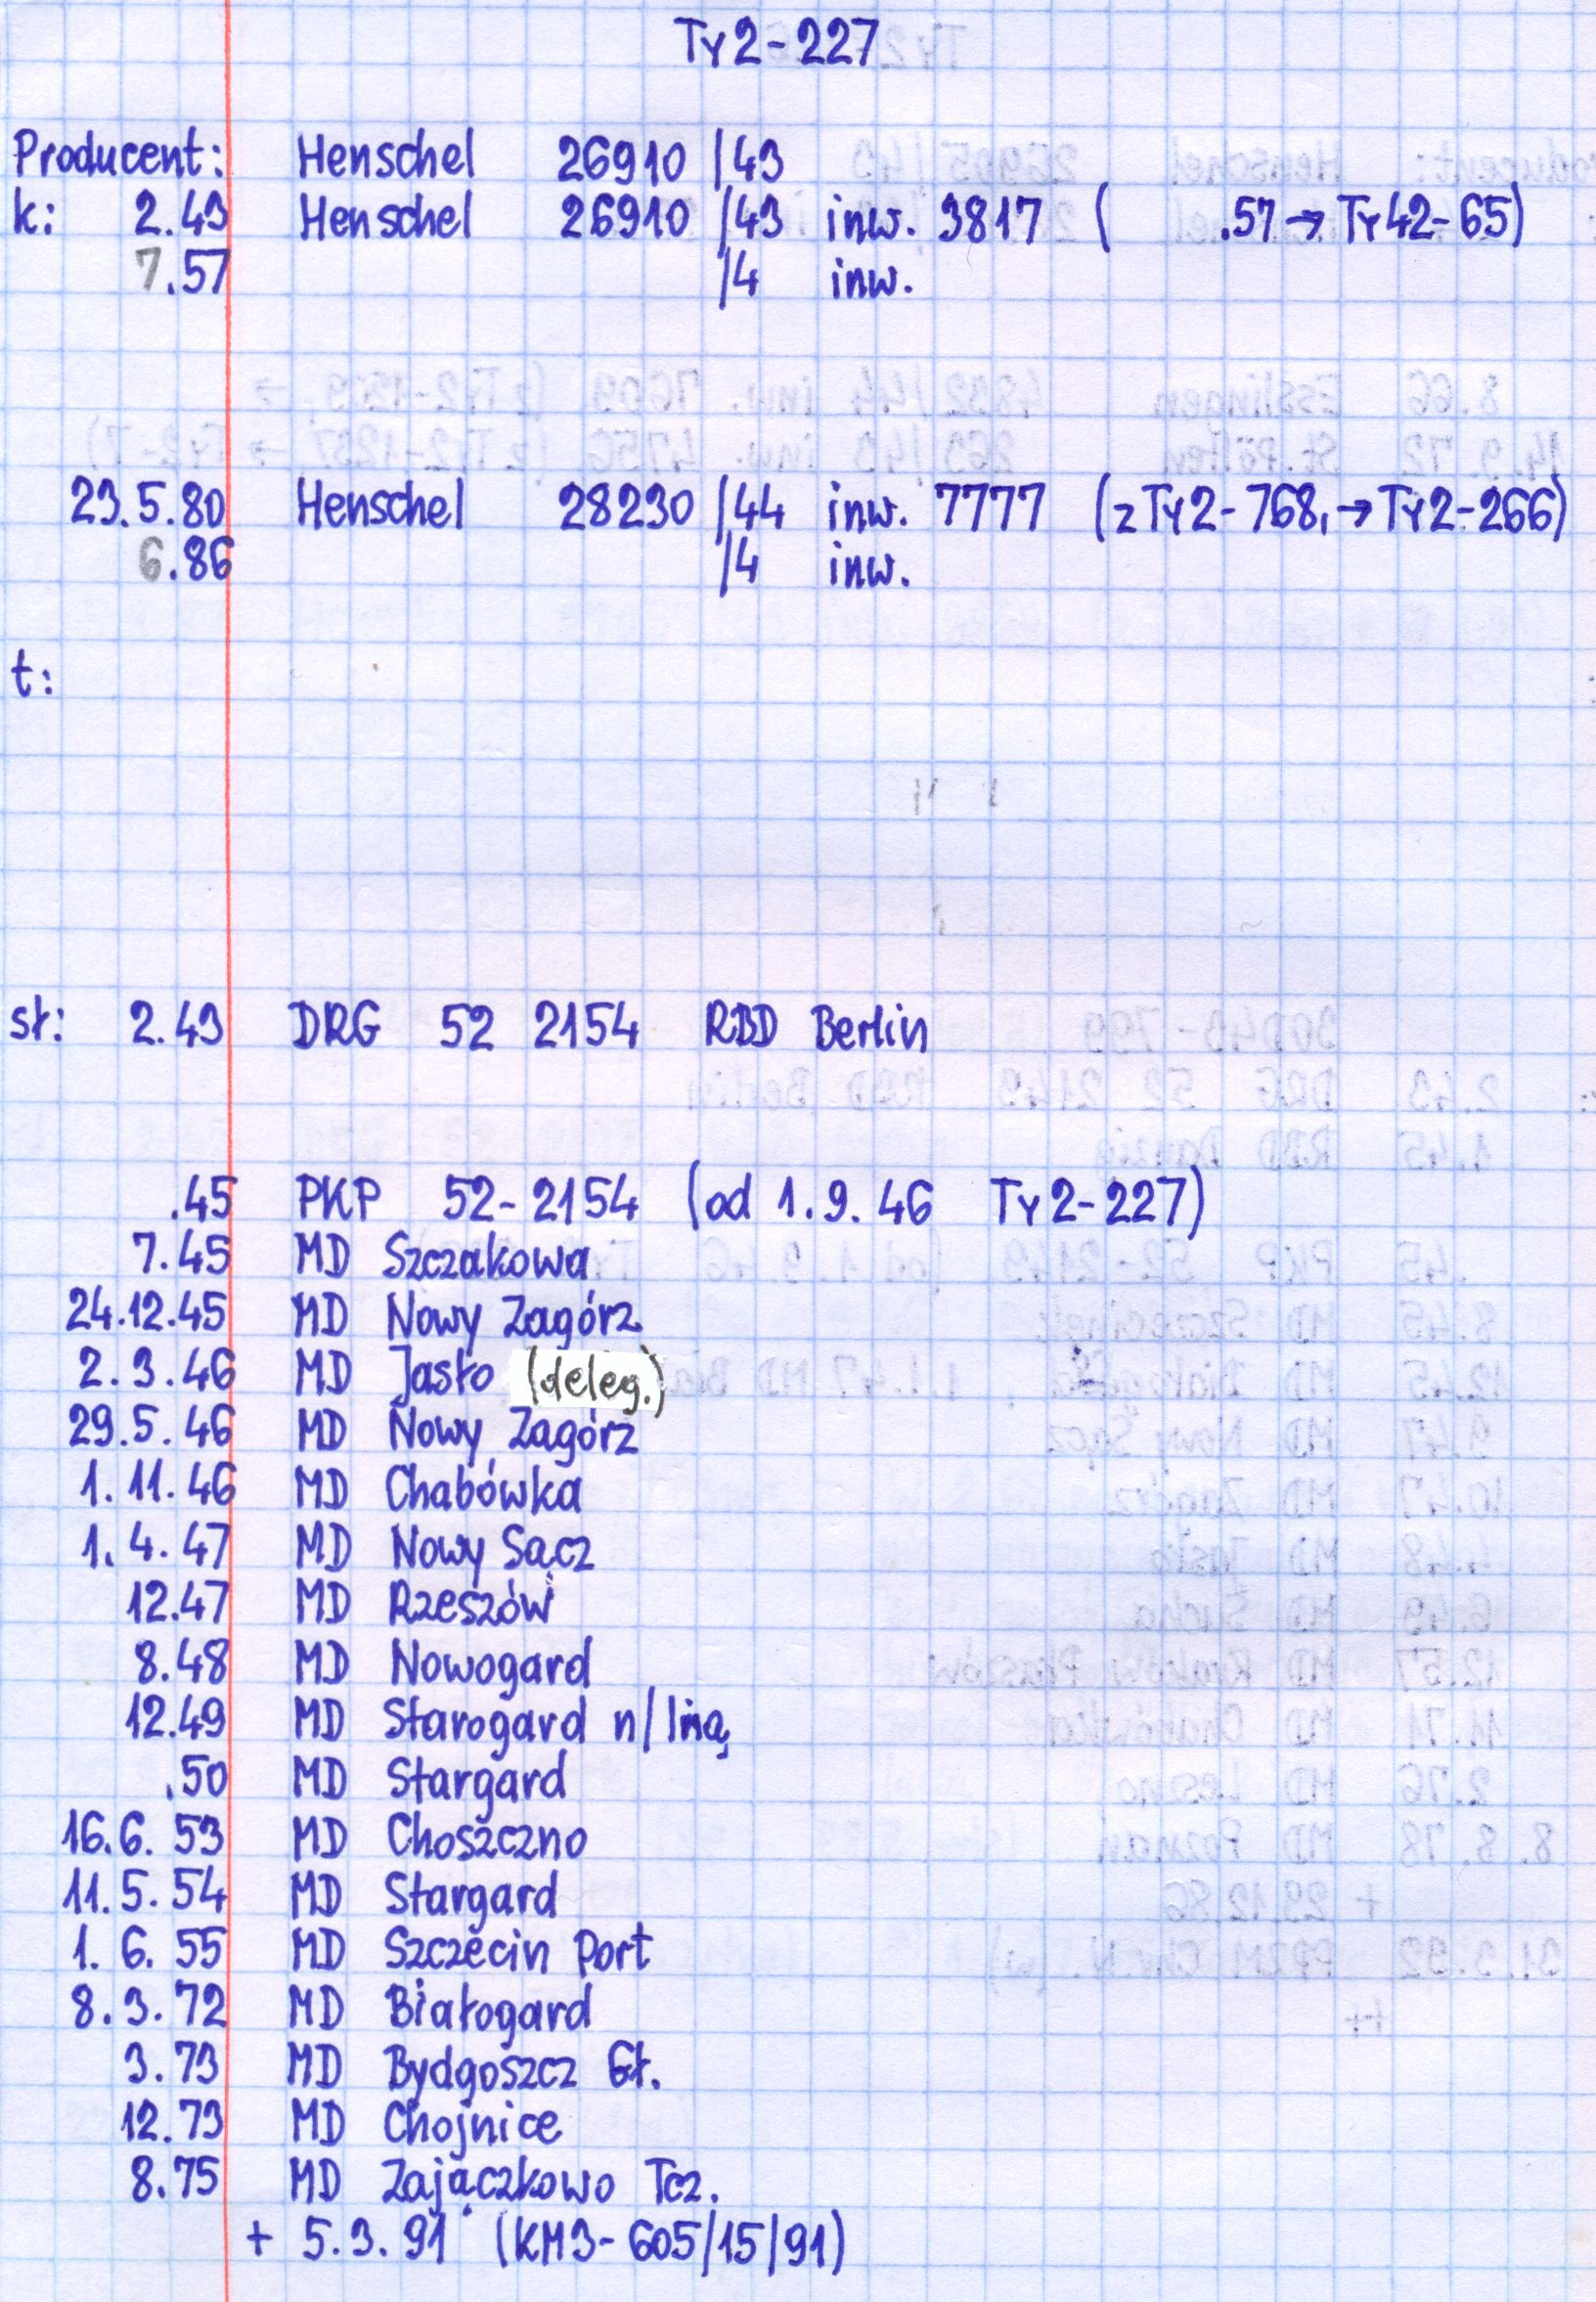 Ty2-227
Producent: Henschel 26910 /43
k: 2.43 Henschel 26910 /43 inw. 3817 ( .57 → Ty42-65)
7.57 /4 inw.
23.5.80 Henschel 28230 /44 inw. 7777 (z Ty2-768, → Ty2-266)
6.86 /4 inw.
t:
st: 2.43 DRG 52 2154 RBD Berlin
.45 PKP 52-2154 (od 1.9.46 Ty2-227)
7.45 MD Szczakowa
24.12.45 MD Nowy Zagórz
2.3.46 MD Jasło (deleg.)
29.5.46 MD Nowy Zagórz
1.11.46 MD Chabówka
1.4.47 MD Nowy Sącz
12.47 MD Rzeszów
8.48 MD Nowogard
12.49 MD Starogard n/Iną
.50 MD Stargard
16.6.53 MD Choszczno
11.5.54 MD Stargard
1.6.55 MD Szczecin Port
8.3.72 MD Białogard
3.73 MD Bydgoszcz Gł.
12.73 MD Chojnice
8.75 MD Zajączkowo Tcz.
+ 5.3.91 (KM3-605/15/91)